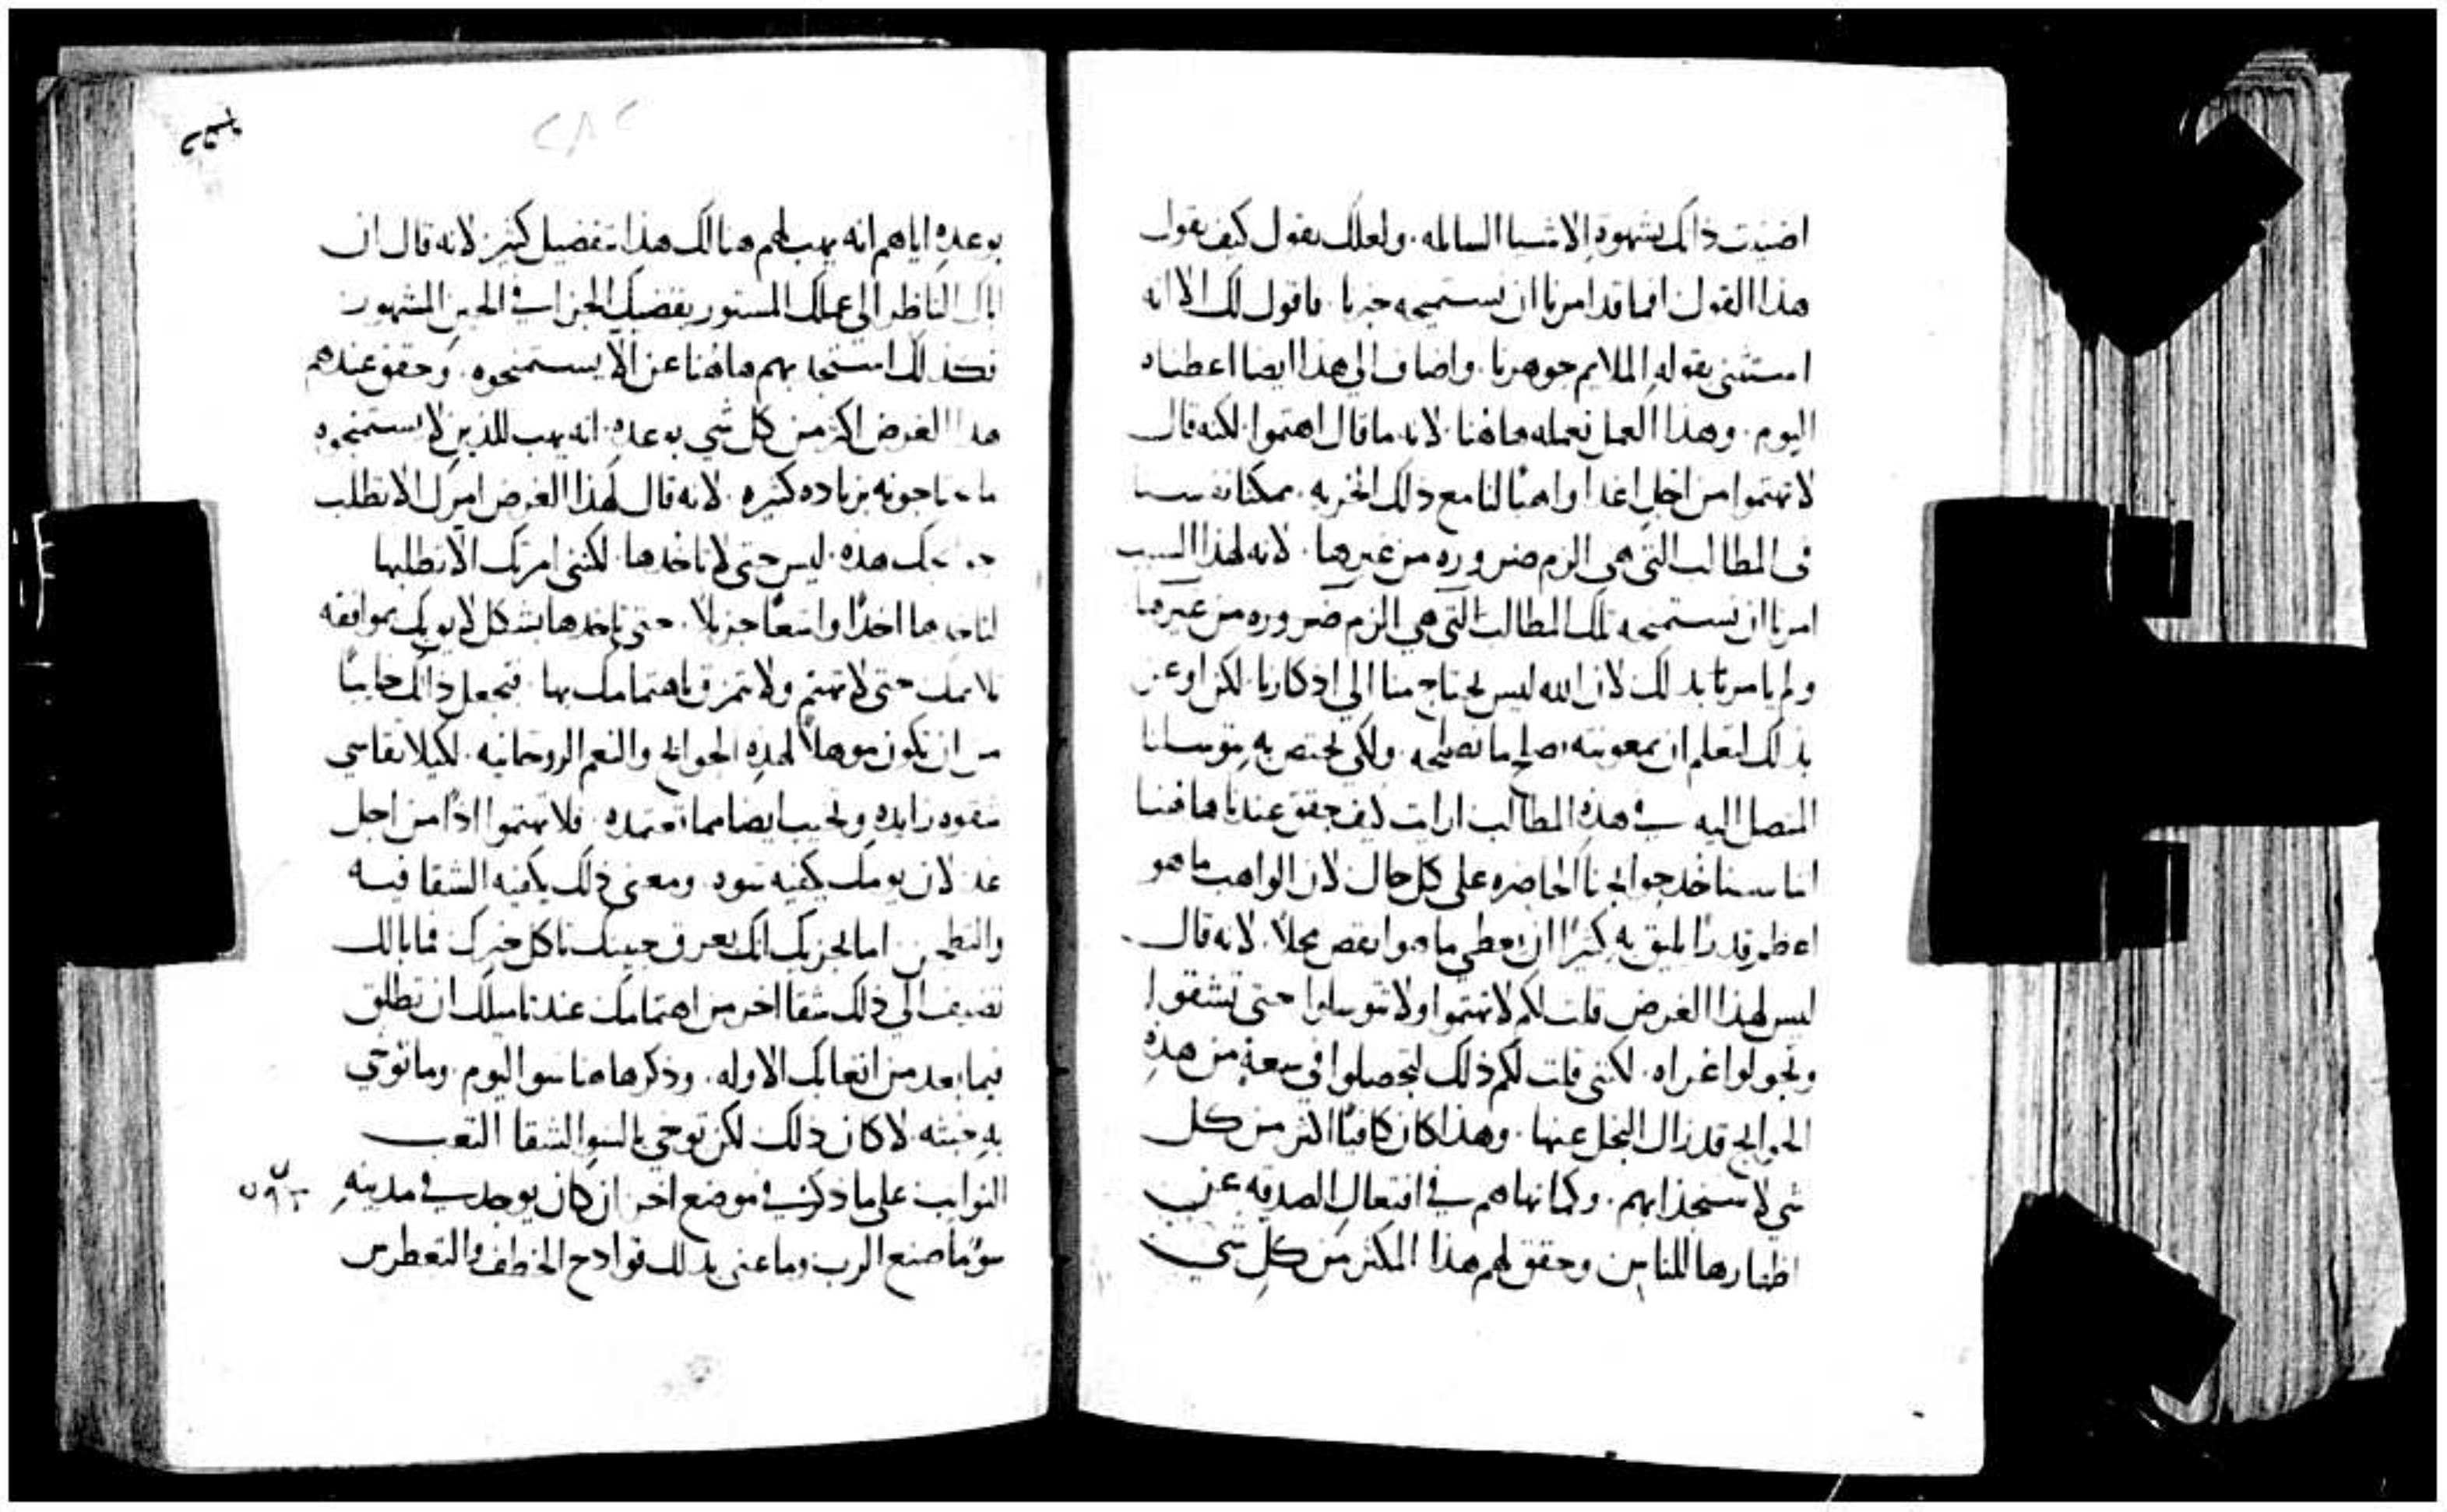 اضنيت ذالك بشهوة الاشيا السايله. ولعلك تقول كيف يقول
هذا القول افما قد امرنا ان نستميحه خبزنا. فاقول لك الا انه
استثنى بقوله الملايم جوهرنا. واضاف الي هذا ايضا اعطناه
اليوم. وهذا العمل نعمله هاهنا. لانه ما قال اهتموا. لكنه قال
لا تهتموا من اجل اغدا واهبًا لنا مع ذالك الحريه.
في المطالب التي هي الزم ضروره من غيرها. لانه لهذا السبب
امرنا ان نستميحه تلك المطالب التي هي الزم ضروره من غيرها
ولم يامرنا بذلك لان الله ليس يحتاج منا الي اذكارنا. لكن اوعز
بذلك لنعلم ان بمعونته نصلح ما نصلحه. ولكي نختص به بتوسلنا
المتصل اليه في هذه المطالب ارايت كيف حقق عندنا هاهنا
اننا سناخد حوايجنا الحاضره على كل حال لان الواهب ما هو
اعظم قدرًا يليق به كثيرًا ان يعطي ما هو انقص محلًا. لانه قال
ليس لهذا الغرض قلت لكم لا تهتموا ولا تتوسلوا حتى تشقوا
وتجولوا عراه. لكنني قلت لكم ذلك لتحصلوا في سعةٍ من هذهِ
الحوايج قد زال البخل عنها. وهذا كان كافيًا اكثر من كل
شي لاستجذابهم. وكما نهاهم في افتعال الصدقه عن
اظهارها للناس وحقق لهم هذا المكثر من كل شي
بوعده اياهم انه يهب لهم هنالك هذا بتفضيل كثير. لانه قال ان
اباك الناظر الى عملك المستور يقضيك الجزا في الحين المشهور
فكذلك استجذبهم هاهنا عن الا يستمنحوه. وحقق عندهم
هذا الغرض اكثر من كل شي بوعده. انه يهب للذين لا يستمنحوه
ما يحتاجونه بزياده كثيره. لانه قال لهذا الغرض امرك الا تطلب
حوايجك هذه. ليس حتى لا تاخدها. لكنني امرتك الا تطلبها
لتاخدها اخدًا واسعًا جزيلًا. حتى تاخدها بشكل لايق بك بموافقه
تلايمك حتى لا تهتم ولا تتمزق باهتمامك بها. فتجعل ذالك خايبًا
من ان تكون موهلًا لهذهِ الحوايج والنعم الروحانيه. لكيلا تقاسي
شقوه زايدهٍ وتخيب ايضا مما تعتمده. فلا تهتموا اذًا من اجل
غد لان يومك يكفيه سوه. ومعنى ذلك يكفيه الشقا فيه
والتطحن اما يجزيك انك بعرق جبينك تاكل خبزك فما بالك
تضيف الى ذلك شقا اخر من اهتمامك عند تاميلك ان تطلق
فيما بعد من اتعابك الاوله. وذكر هاهنا سوا اليوم. وما توخي
به خبثه لا كان ذلك لكن توخي بالسو الشقا التعب
النوايب على ما ذكر في موضع اخر ان كان يوجد في مدينهٍ
سؤ ما صنع الرب وما عنى بذلك قوادح الخطف والتغطرس